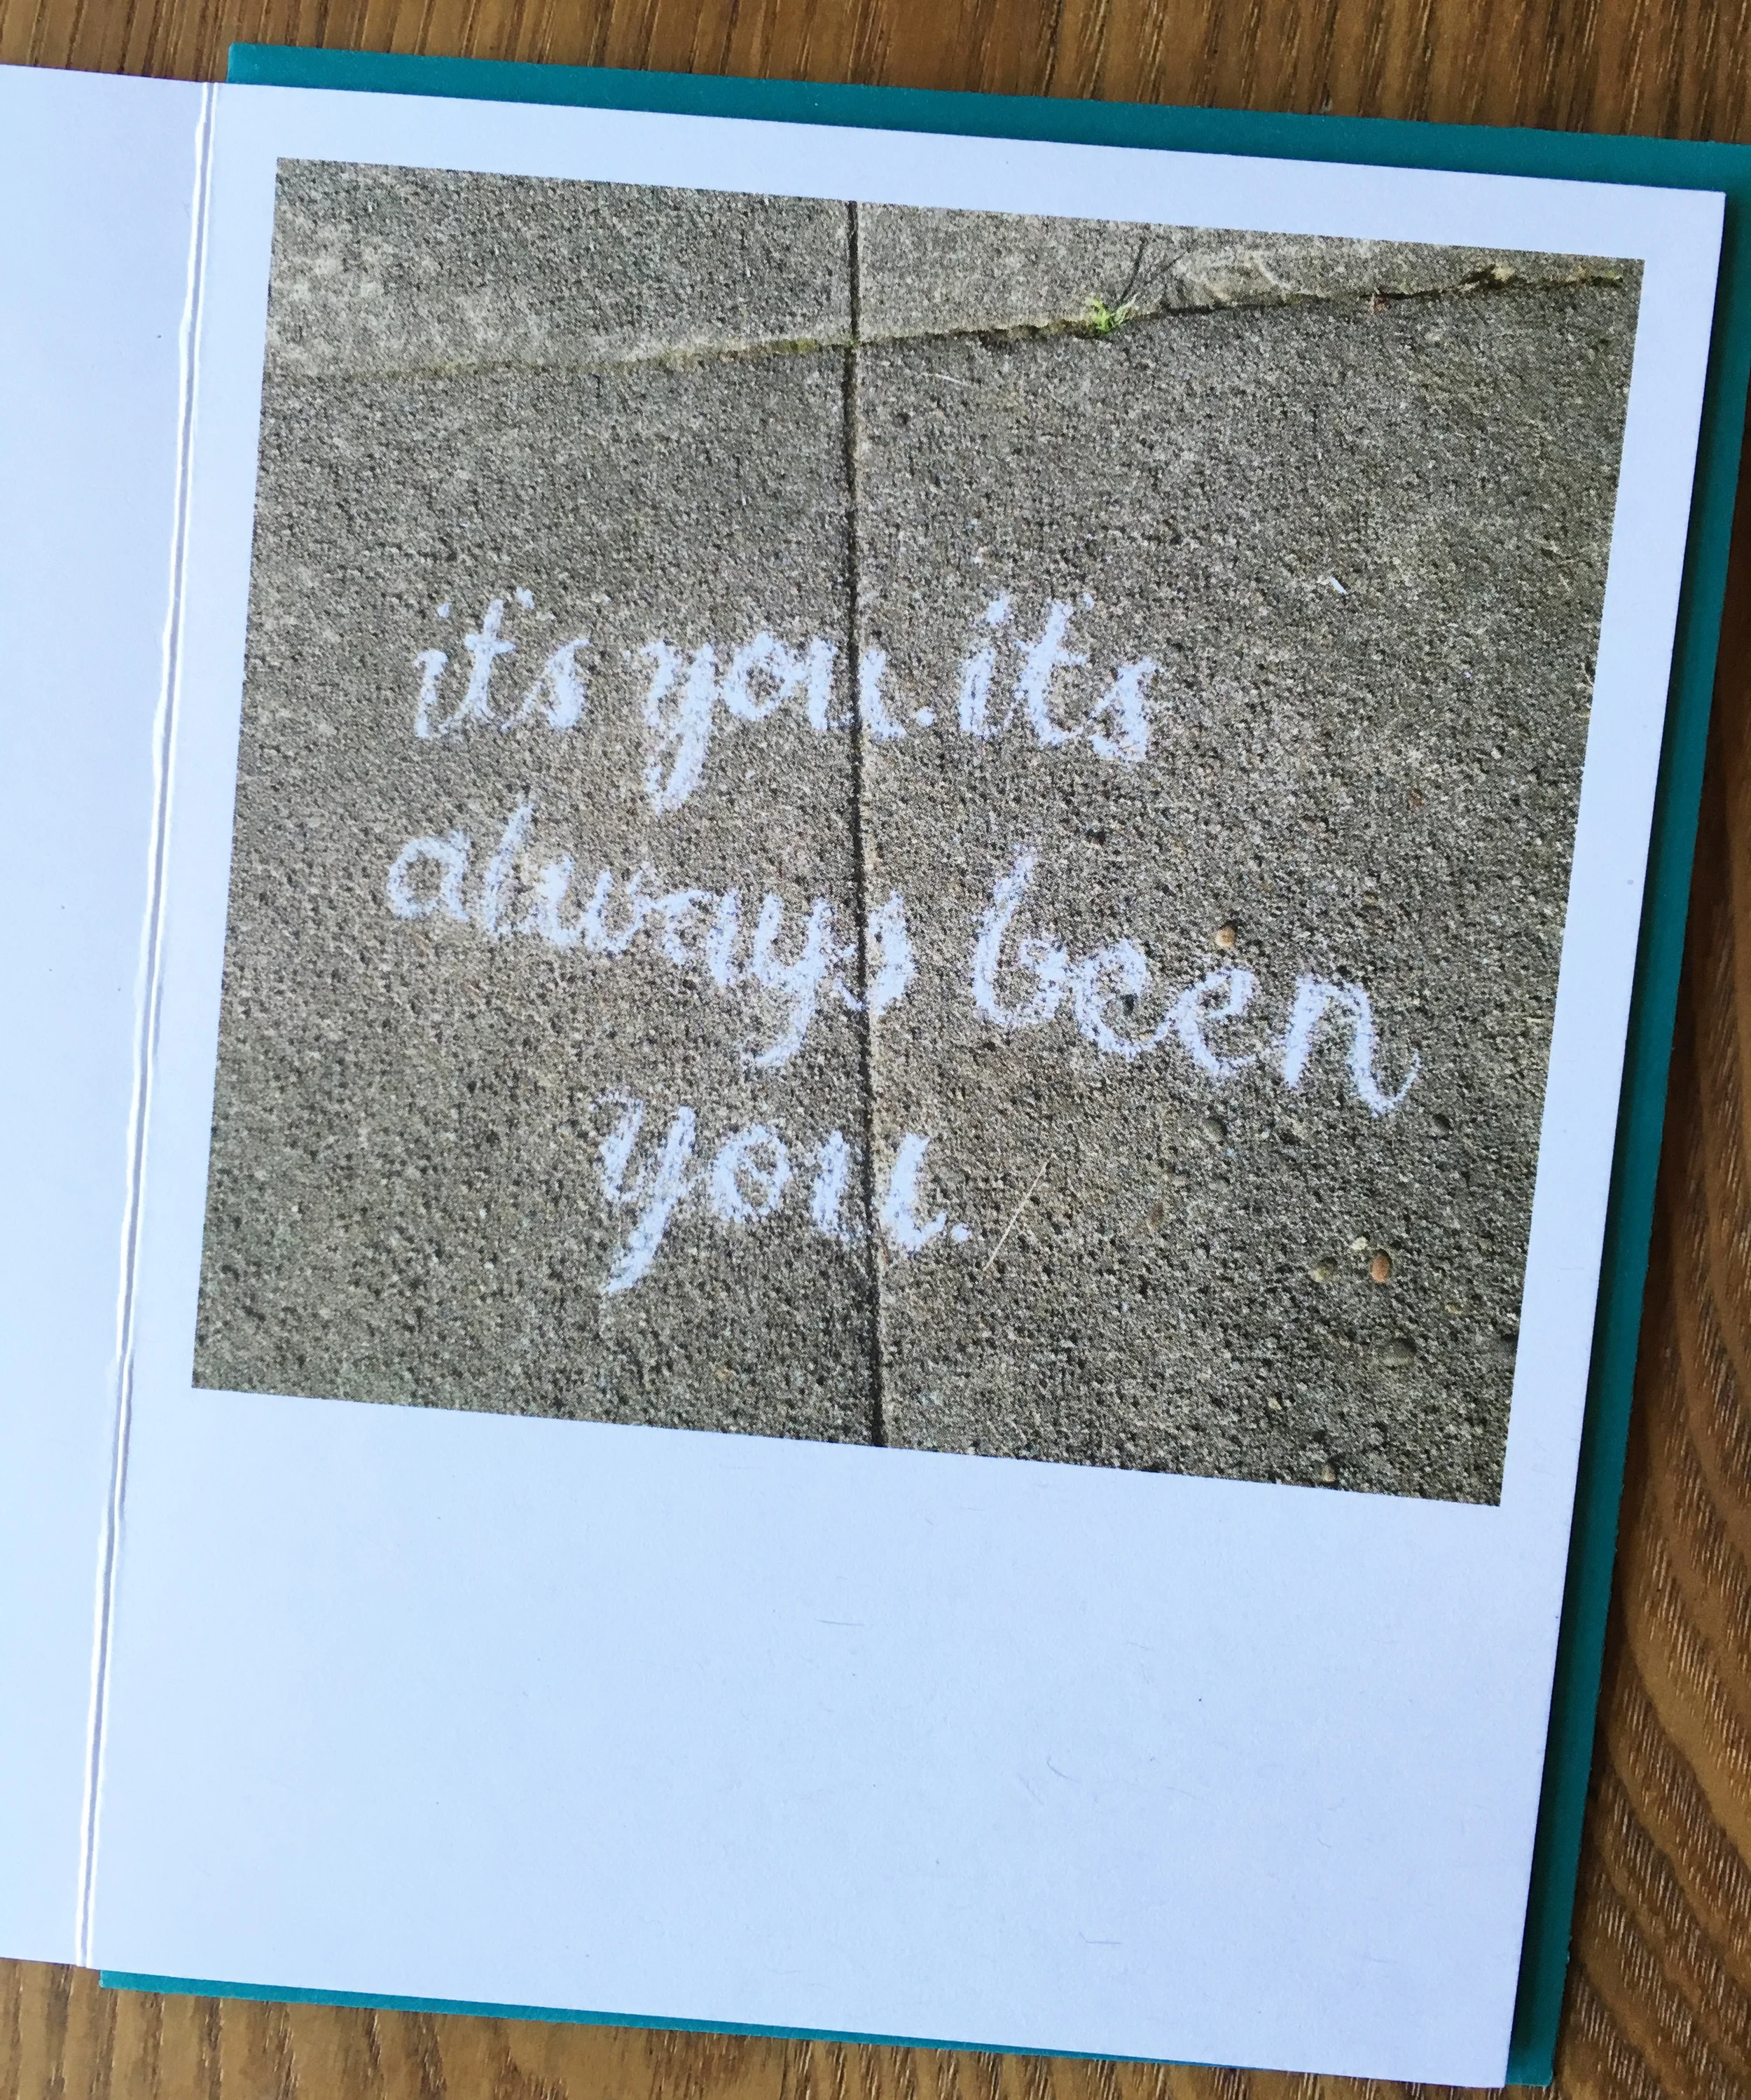 it's you. it's
always been
you.